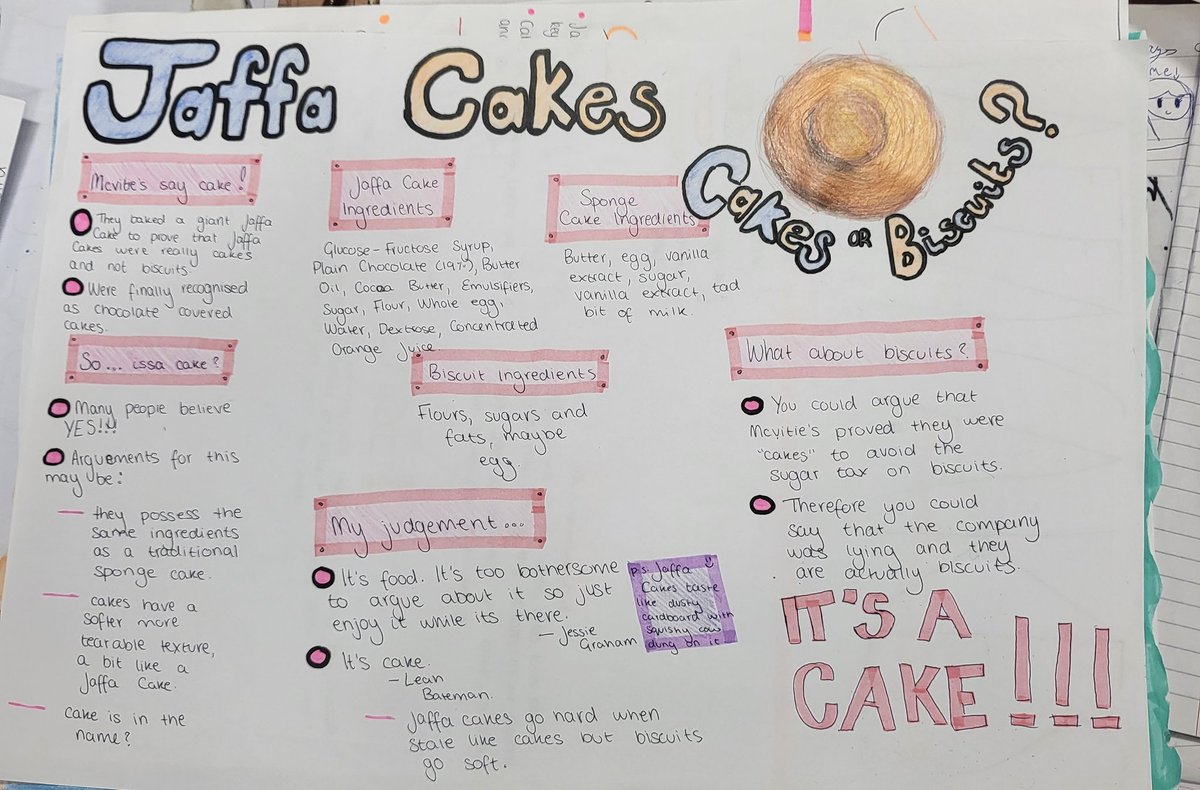 Jaffa Cakes
Cakes OR Biscuits?
Mcvite's say cake!
They baked a giant Jaffa
Cake to prove that Jaffa
Cakes were really cakes
and not biscuits
Were finally recognised
as chocolate covered
cakes.
So... issa cake?
Many people believe
YES!!!
Arguements for this
may be:
they possess the
same ingredients
as a traditional
sponge cake.
cakes have a
softer more
tearable texture,
a bit like a
Jaffa Cake.
cake is in the
name?
Jaffa Cake
Ingredients
Glucose-Fructose Syrup,
Plain Chocolate (19%), Butter
Oil, Cocoa Butter, Emulsifiers,
Sugar, Flour, Whole egg,
Water, Dextrose, Concentrated
Orange Juice
Sponge
Cake Ingredients
Butter, egg, vanilla
extract, sugar,
vanilla extract, tad
bit of milk.
Biscuit Ingredients
Flours, sugars and
fats, maybe
egg.
My judgement...
It's food. It's too bothersome
to argue about it so just
enjoy it while its there.
- Jessie
Graham
It's cake.
- Lean
Bateman.
Jaffa cakes go hard when
stale like cakes but biscuits
go soft.
p.s. Jaffa
Cakes taste
like dusty
cardboard with
squishy cow
dung on it
What about biscuits?
You could argue that
Mcvitie's proved they were
"cakes" to avoid the
sugar tax on biscuits.
Therefore you could
say that the company
was lying and they
are actually biscuits.
IT'S A
CAKE!!!